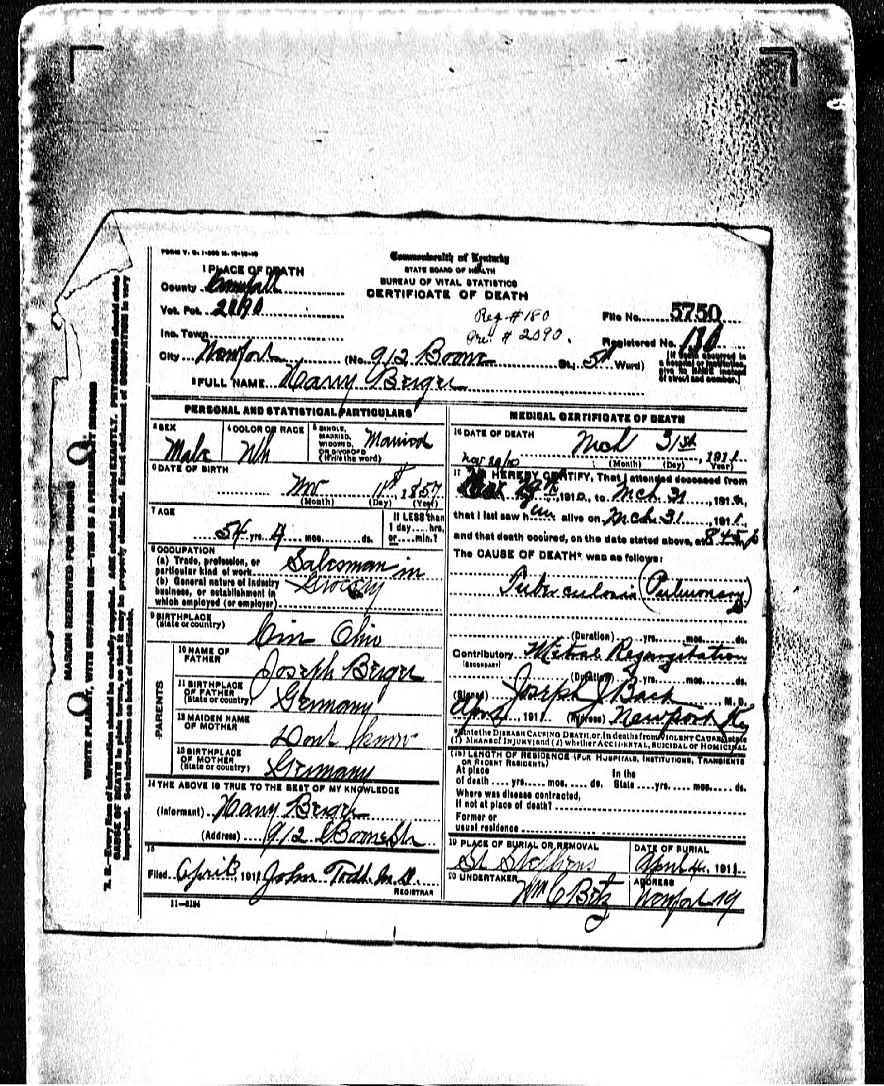 FORM V. S. 1
Commonwealth of Kentucky
STATE BOARD OF HEALTH
BUREAU OF VITAL STATISTICS
CERTIFICATE OF DEATH
1 PLACE OF DEATH
County Campbell
Vot. Pct. 2090
Reg # 180
Pre. # 2090.
File No. 5750
Inc. Town
Registered No. 180
City Newport (No. 912 Boone St.; 5th Ward)
[If death occurred in a hospital or institution, give its NAME instead of street and number.]
2 FULL NAME Harry Berger
PERSONAL AND STATISTICAL PARTICULARS
3 SEX Male
4 COLOR OR RACE Wh
5 SINGLE, MARRIED, WIDOWED, OR DIVORCED (Write the word) Married
6 DATE OF BIRTH
Nov 11st 1857
(Month) (Day) (Year)
7 AGE
54 yrs. 4 mos. ds.
If LESS than 1 day hrs. or min.?
8 OCCUPATION
(a) Trade, profession, or particular kind of work Salesman in
(b) General nature of industry business, or establishment in which employed (or employer) Grocery
9 BIRTHPLACE
(State or country) Cin Ohio
PARENTS
10 NAME OF FATHER Joseph Berger
11 BIRTHPLACE OF FATHER (State or country) Germany
12 MAIDEN NAME OF MOTHER Dont know
13 BIRTHPLACE OF MOTHER (State or country) Germany
14 THE ABOVE IS TRUE TO THE BEST OF MY KNOWLEDGE
(Informant) Harry Berger
(Address) 912 Boone Str
15
Filed April 3, 1911 John Todd M.D.
REGISTRAR
11-5184
MEDICAL CERTIFICATE OF DEATH
16 DATE OF DEATH
Mch 31st, 1911
(Month) (Day) (Year)
17 I HEREBY CERTIFY, That I attended deceased from
1910, to Mch 31, 191
that I last saw him alive on Mch 31, 1911,
and that death occured, on the date stated above, at 8 45 p m
The CAUSE OF DEATH* was as follows:
Tuberculosis (Pulmonary)
(Duration) yrs. mos. ds.
Contributory Mitral Regurgitation
(SECONDARY)
(Duration) yrs. mos. ds.
(Signed) Joseph J Bach M. D.
Apr 1911 (Address) Newport Ky
*State the DISEASE CAUSING DEATH, or, in deaths from VIOLENT CAUSES, state (1) MEANS OF INJURY; and (2) whether ACCIDENTAL, SUICIDAL or HOMICIDAL
(18) LENGTH OF RESIDENCE (FOR HOSPITALS, INSTITUTIONS, TRANSIENTS OR RECENT RESIDENTS)
At place of death yrs. mos. ds. In the State yrs. mos. ds.
Where was disease contracted, if not at place of death?
Former or usual residence
19 PLACE OF BURIAL OR REMOVAL
St Stephens
DATE OF BURIAL
April 4, 1911
20 UNDERTAKER
Wm C Betz
ADDRESS
Newport Ky
MARGIN RESERVED FOR BINDING
WRITE PLAINLY, WITH UNFADING INK—THIS IS A PERMANENT RECORD
N. B.—Every item of information should be carefully supplied. AGE should be stated EXACTLY. PHYSICIANS should state
CAUSE OF DEATH in plain terms, so that it may be properly classified. Exact statement of OCCUPATION is very
important. See instructions on back of certificate.